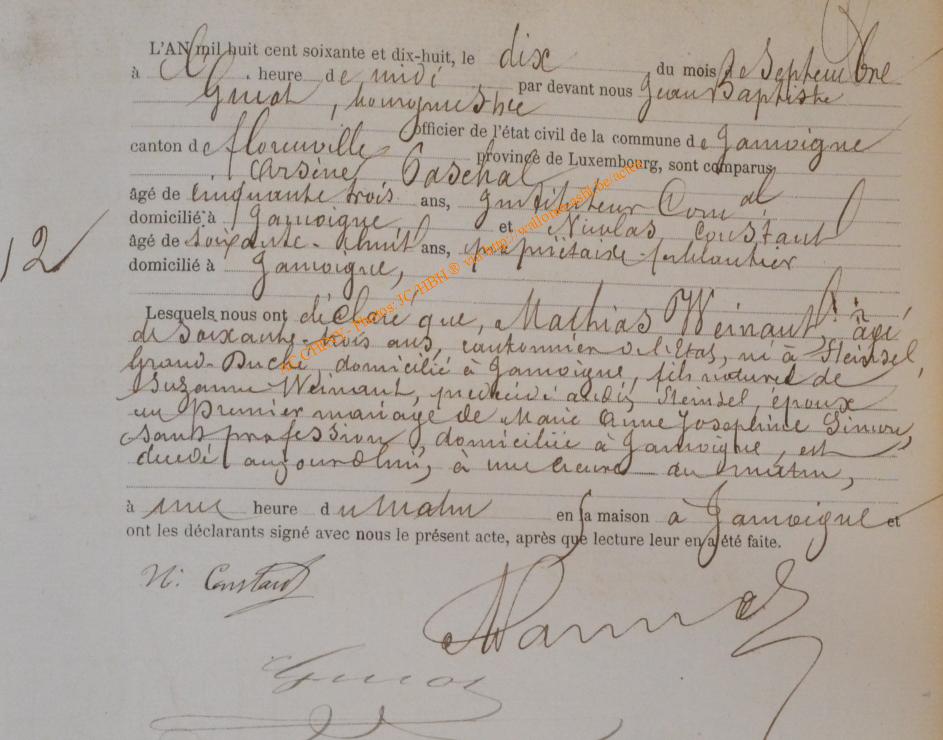 L'AN mil huit cent soixante et dix-huit, le dix du mois de Septembre
à heure de midi par devant nous Jean Baptiste
Guiot, bourgmestre
officier de l'état civil de la commune de Jamoigne
canton de florenville province de Luxembourg, sont comparus
Arsène Paschal
âgé de cinquante trois ans, Instituteur Com.al
domicilié à Jamoigne et Nicolas Constant
âgé de soixante-huit ans, propriétaire-ferblantier
12
domicilié à Jamoigne,
Lesquels nous ont déclaré que, Mathias Weinant, âgé
de soixante-trois ans, cantonnier de l'Etat, né à Steinsel,
Grand-Duché, domicilié à Jamoigne, fils naturel de
Suzanne Weinant, décédée audit Steinsel, époux
en Premier mariage de Marie Anne Josephine Simon,
sans profession, domiciliée à Jamoigne, est
décédé aujourd'hui, à une heure du matin,
à une heure du Matin en sa maison à Jamoigne et
ont les déclarants signé avec nous le présent acte, après que lecture leur en a été faite.
N. Constant
Guiot
JC-HBH ® via http://wallonica